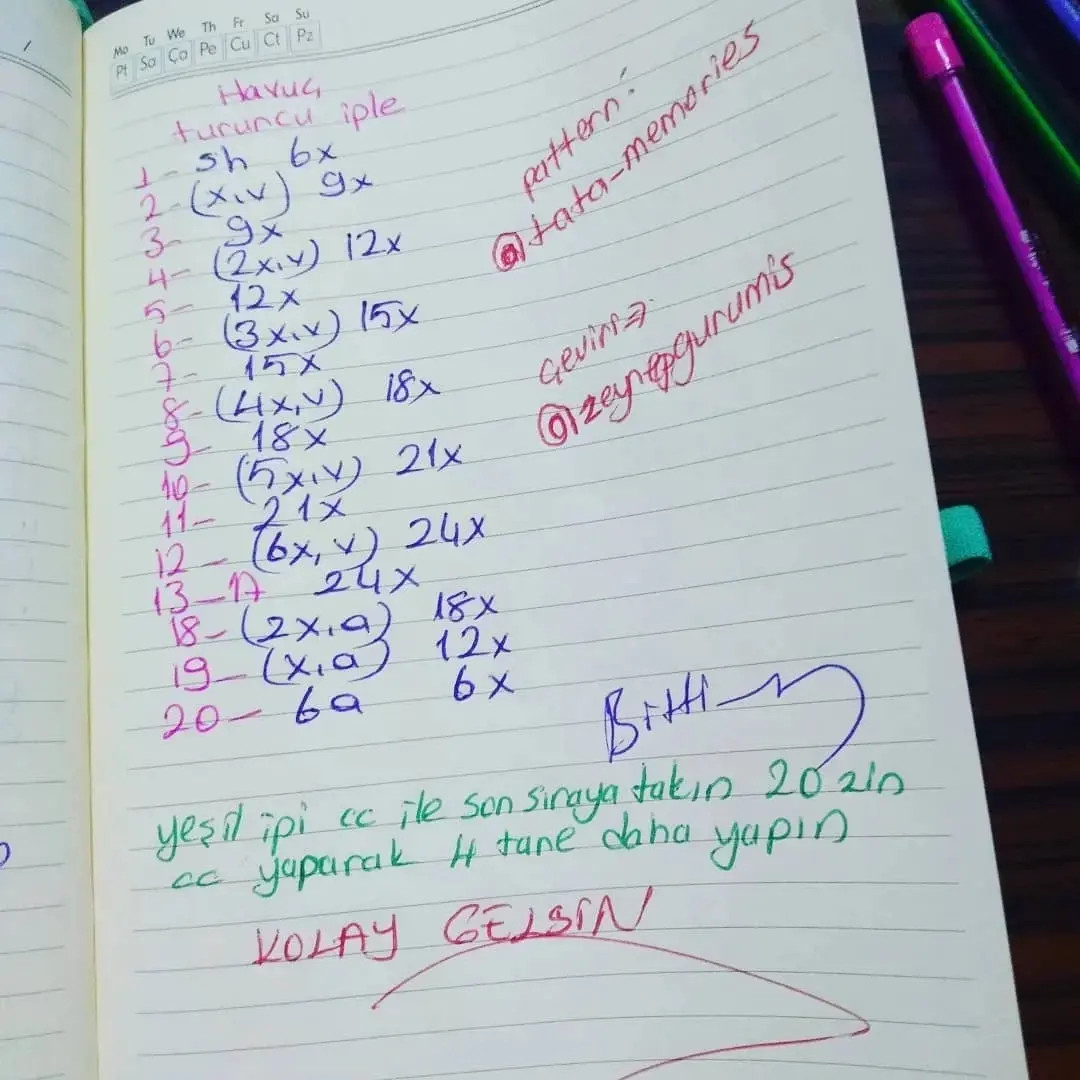 Mo Tu We Th Fr Sa Su
Pt Sa Ça Pe Cu Ct Pz
Havuç
turuncu iple
1- sh 6x
2- (x,v) 9x
3- 9x
4- (2x,v) 12x
5- 12x
6- (3x,v) 15x
7- 15x
8- (4x,v) 18x
9- 18x
10- (5x,v) 21x
11- 21x
12- (6x,v) 24x
13-17 24x
18- (2x,a) 18x
19- (x,a) 12x
20- 6a 6x
Bitti
pattern:
@tata-memories
çeviri⇒
@zeynepgurumis
yeşil ipi cc ile son sıraya takın 20 zin
cc yaparak 4 tane daha yapın
KOLAY GELSİN